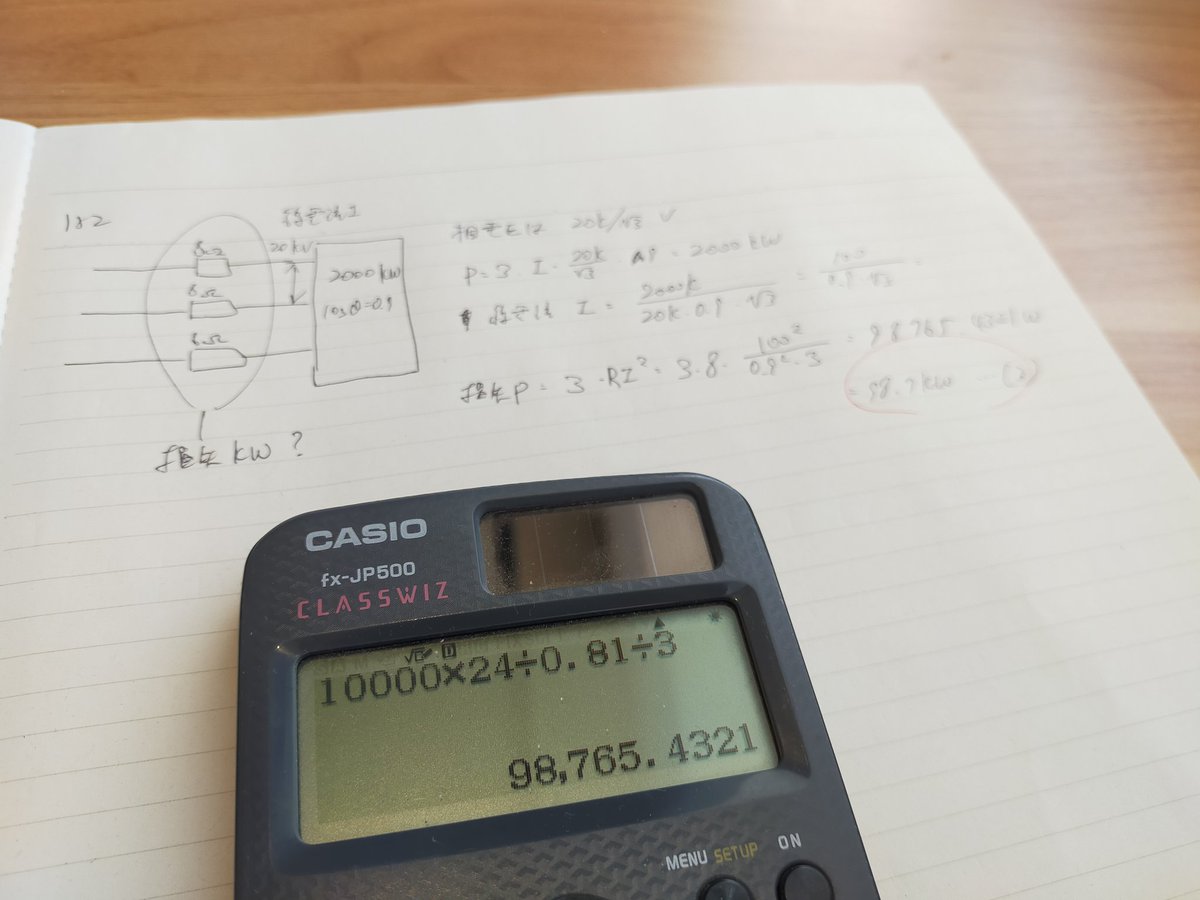 8Ω
20kV
2000kW
cosθ=0.9
8Ω
8Ω
kW ?
20k/√3 V
P=3・I・20k/√3・0.9=2000kW
I=2000k/20k・0.9・√3=100/0.9・√3=
P=3・RI²=3・8・100²/0.9²・3=98765.432kW
=98.7kW
CASIO
fx-JP500
CLASSWIZ
10000×24÷0.81÷3
98,765.4321
MENU SETUP ON